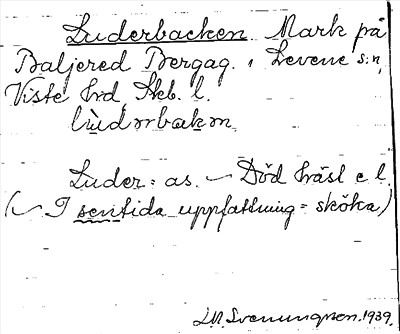 Luderbacken Mark på
Baljered Bergag. i Levene s:n,
Viste hrd, Skb. l.
lùdərbakən
Luder = as. ~ Död häst e l.
(~ I sentida uppfattning = sköka)
Svenungsen. 1939.